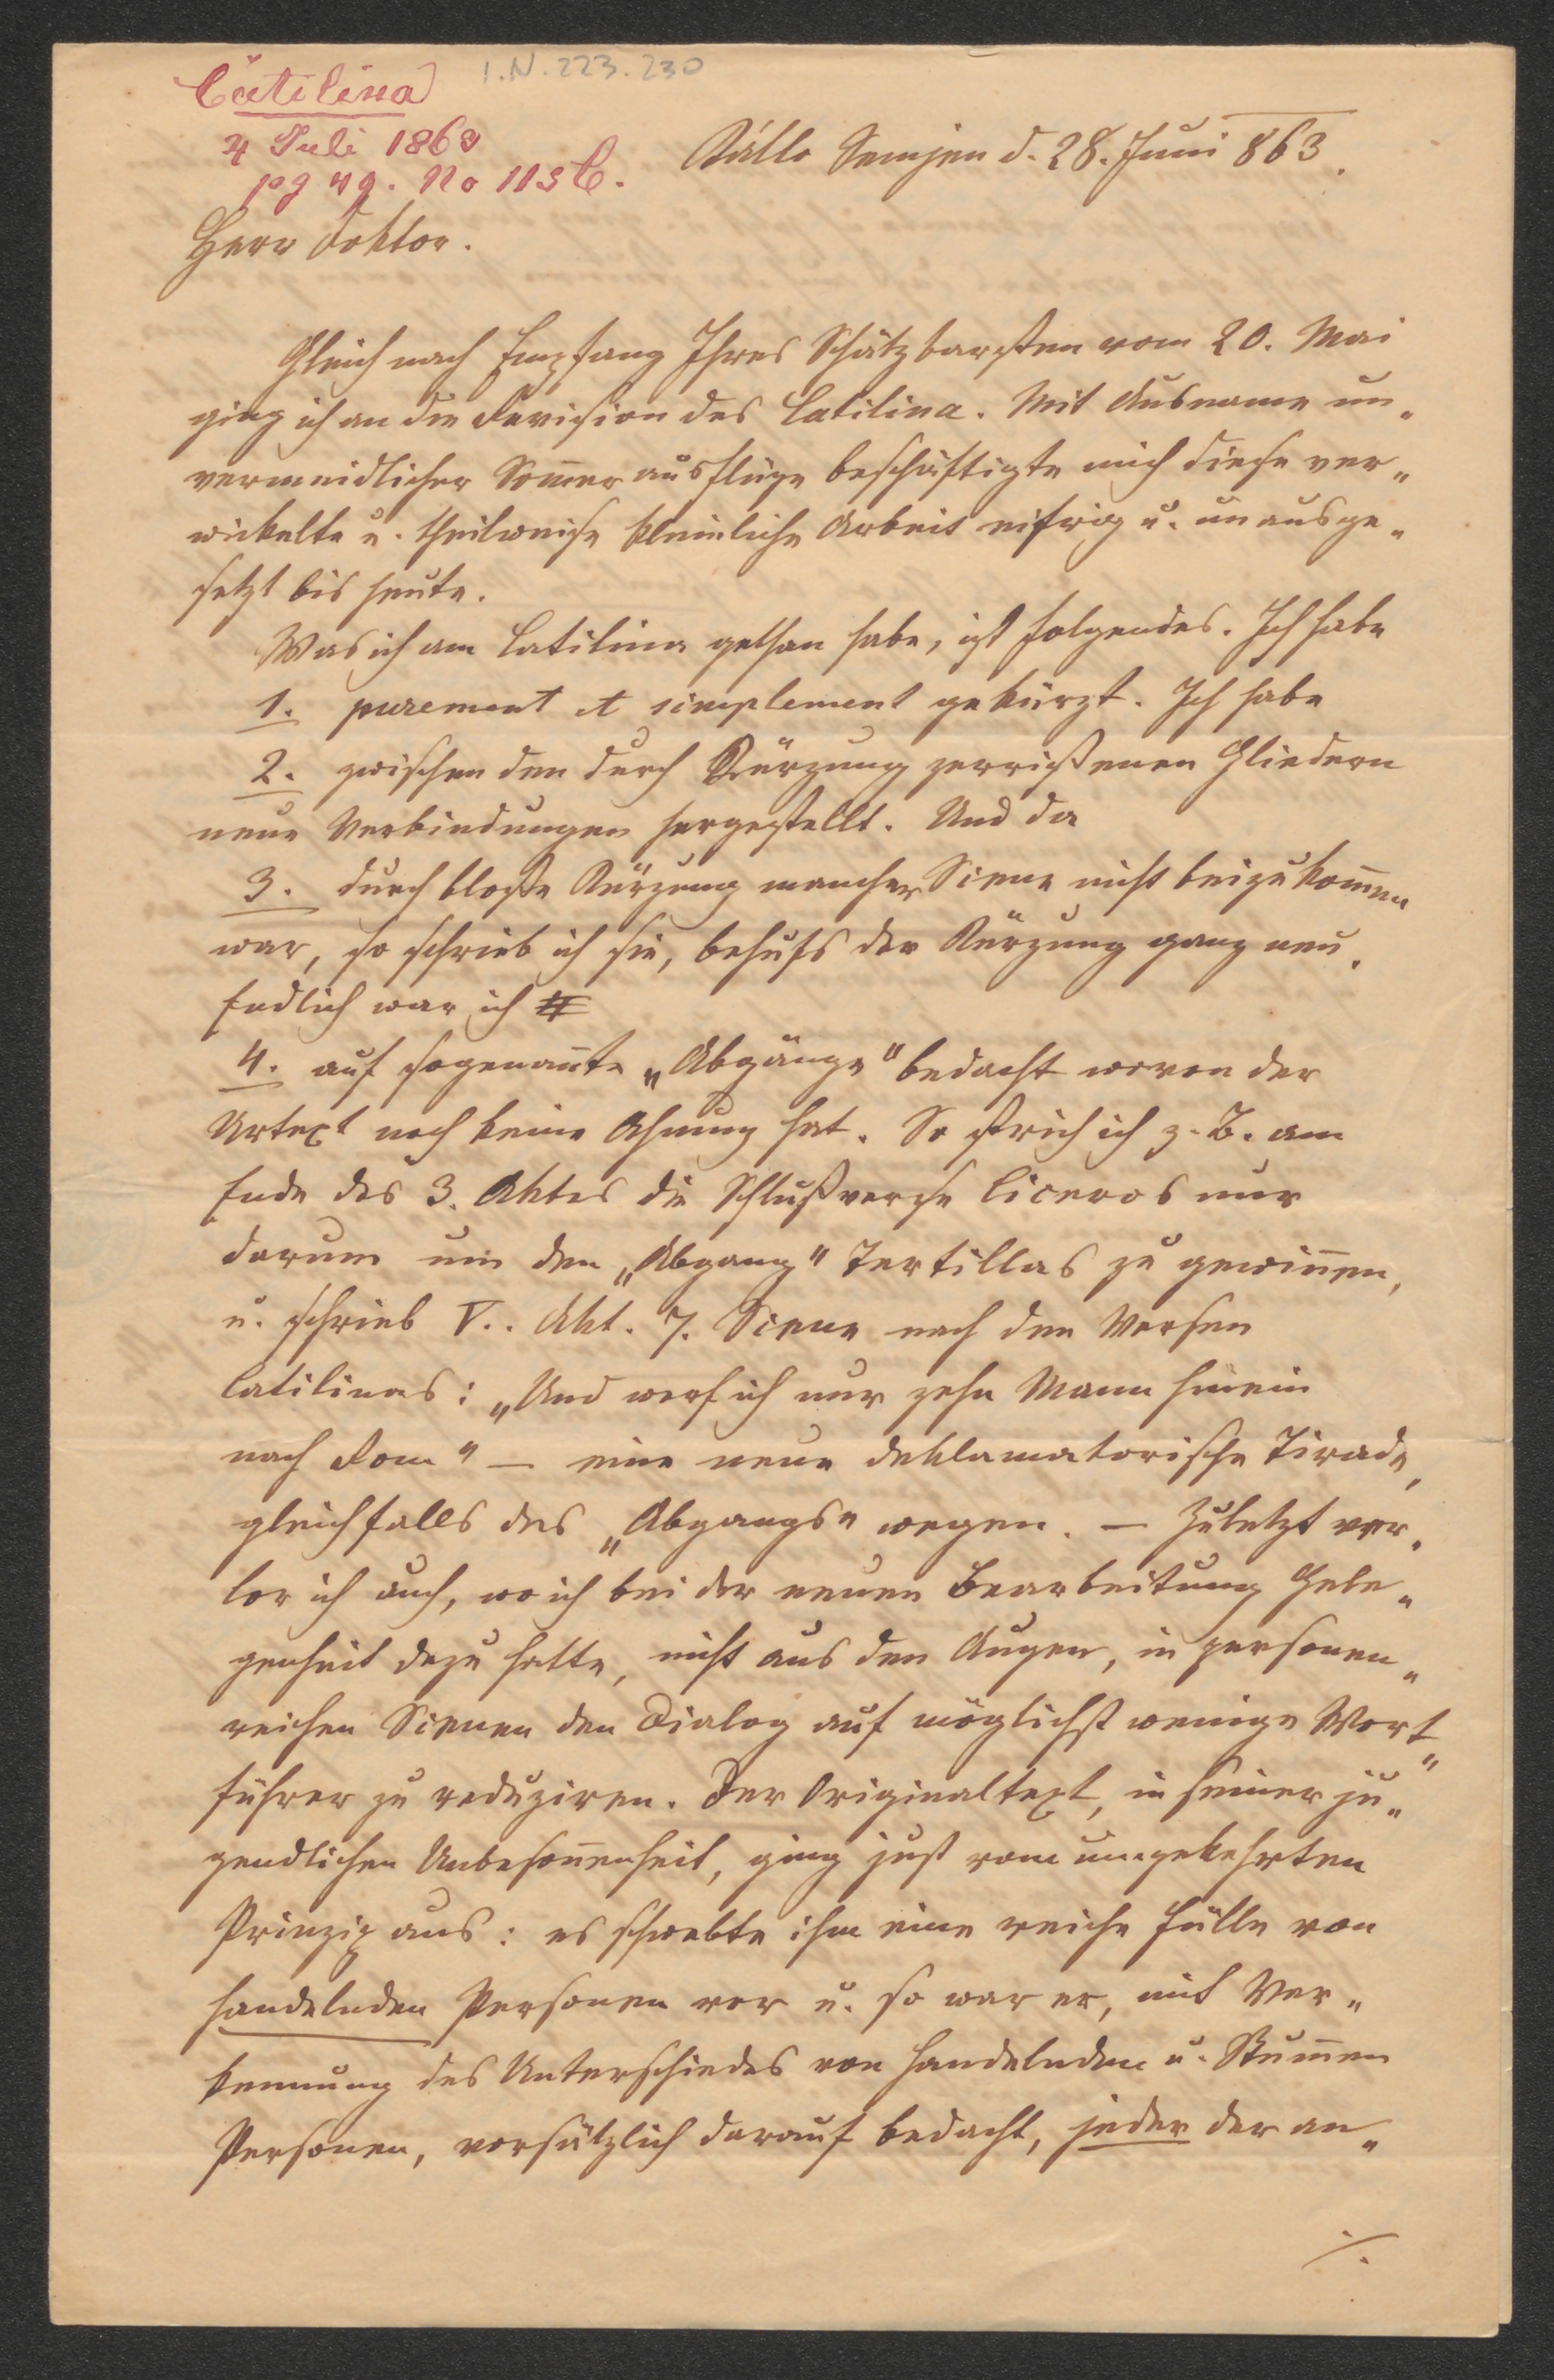 Catilina
I.N. 223.230
4 Juli 1863
pg 49. No 113 C.
Kállo Semjen d. 28. Juni 863.
Herr Doktor.
Gleich nach Empfang Ihres Schätzbarsten vom 20. Mai
ging ich an die Revision des Catilina. Mit Ausname un„
vermeidlicher Som̄erausflüge beschäftigte mich diese ver„
wickelte u. theilweise kleinliche Arbeit eifrig u. unausge„
setzt bis heute.
Was ich am Catilina gethan habe, ist folgendes. Ich habe
1. purement et simplement gekürzt. Ich habe
2. zwischen den durch Kürzung zerrißenen Gliedern
neue Verbindungen hergestellt. Und da
3. durch bloße Kürzung mancher Scene nicht beizukom̄en
war, so schrieb ich sie, behufs der Kürzung ganz neu.
Endlich war ich
4. auf sogenan̄te „Abgänge" bedacht wovon der
Urtext noch keine Ahnung hat. So strich ich z. B. am
Ende des 3. Aktes die Schlußverse Ciceros nur
darum um den „Abgang" Tertillas zu gewin̄en,
u. schrieb V. Akt. 7. Scene nach den Versen
Catilinas: „Und werf ich nur zehn Mann hinein
nach Rom" — eine neue deklamatorische Tirade,
gleichfalls des „Abgangs" wegen. — Zuletzt ver„
lor ich auch, wo ich bei der neuen Bearbeitung Gele„
genheit dazu hatte, nicht aus den Augen, in personen„
reichen Scenen den Dialog auf möglichst wenige Wort„
führer zu reduziren. Der Originaltext, in seiner ju„
gendlichen Unbeson̄enheit, ging just vom umgekehrten
Prinzip aus: es schwebte ihm eine reiche Fülle von
handelnden Personen vor u. so war er, mit Ver„
kennung des Unterschiedes von handelnden u. stum̄en
Personen, vorsätzlich darauf bedacht, jeder der an„
./.